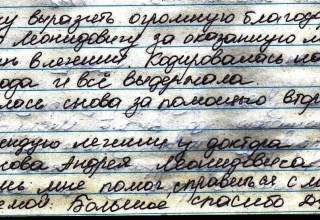 у выразить огромную благод
Леонидовичу за оказанную м
в лечении. Кодировалась на
ода и всё выдержала
лась снова за помощью втор
ендую лечение у доктора
нова Андрея Леонидовича
нь мне помог справиться с м
емой. Большое спасибо Ан